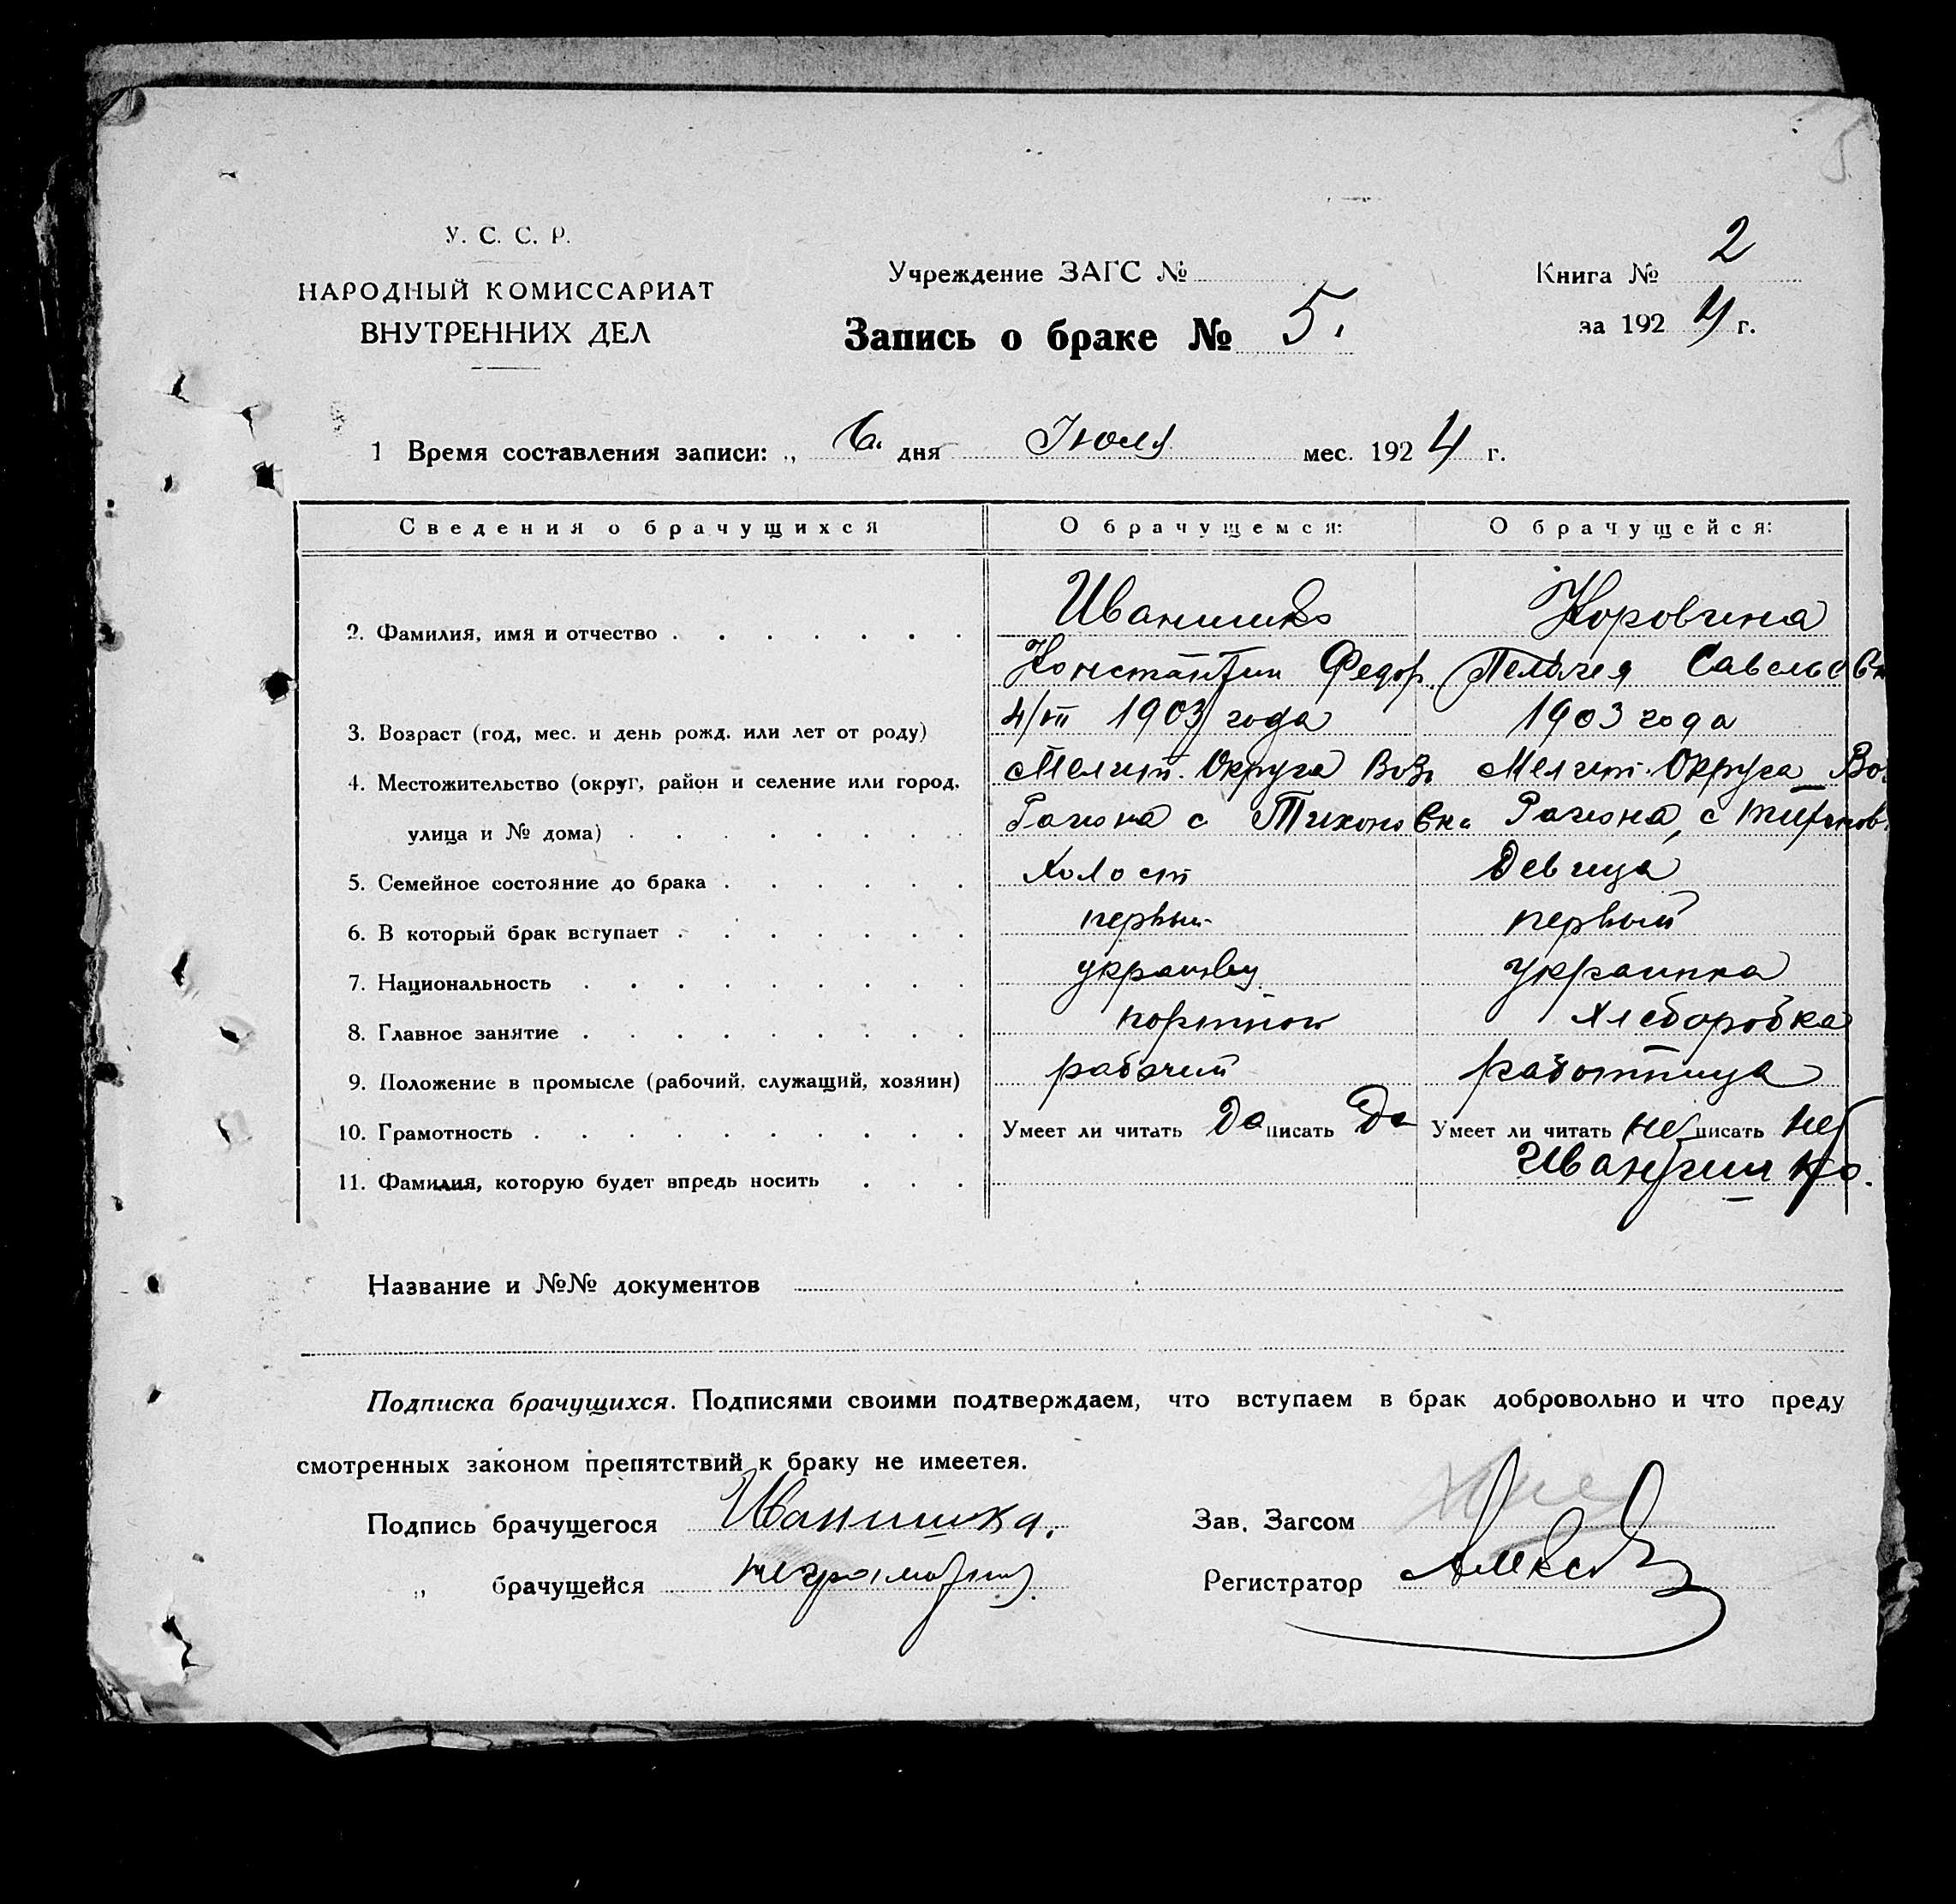 5
У. С. С. Р.
НАРОДНЫЙ КОМИССАРИАТ
ВНУТРЕННИХ ДЕЛ
Учреждение ЗАГС №
Запись о браке № 5.
Книга № 2
за 1924 г.
1 Время составления записи: „ 6 " дня Июля мес. 1924 г.
Сведения о брачущихся О брачущемся: О брачущейся:
2. Фамилия, имя и отчество Иванишко Коровчина
Константин Федор. Пелагея Савельевн
3. Возраст (год, мес. и день рожд. или лет от роду) 4/III 1903 года 1903 года
4. Местожительство (округ, район и селение или город, Мелит. Округа Воз Мелит. Округа Воз
улица и № дома) Района с Тихоновка Района, с
5. Семейное состояние до брака Холост Девица
6. В который брак вступает первый первый
7. Национальность украинец украинка
8. Главное занятие портной Хлеборобка
9. Положение в промысле (рабочий, служащий, хозяин) рабочий работница
10. Грамотность Умеет ли читать Да писать Да Умеет ли читать нет писать нет
11. Фамилия, которую будет впредь носить Иванишко.
Название и №№ документов
Подписка брачущихся. Подписями своими подтверждаем, что вступаем в брак добровольно и что преду
смотренных законом препятствий к браку не имеетея.
Подпись брачущегося Иванишка. Зав. Загсом
„ брачущейся неграмотна. Регистратор